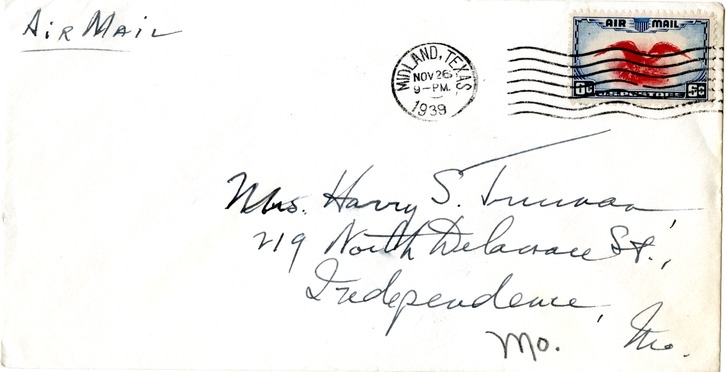 Air Mail
MIDLAND, TEXAS
NOV 26
9-PM.
1939
AIR MAIL
U.S. POSTAGE
6¢ 6¢
Mrs. Harry S. Truman,
219 North Delaware St.,
Independence,
Mo. Mo.